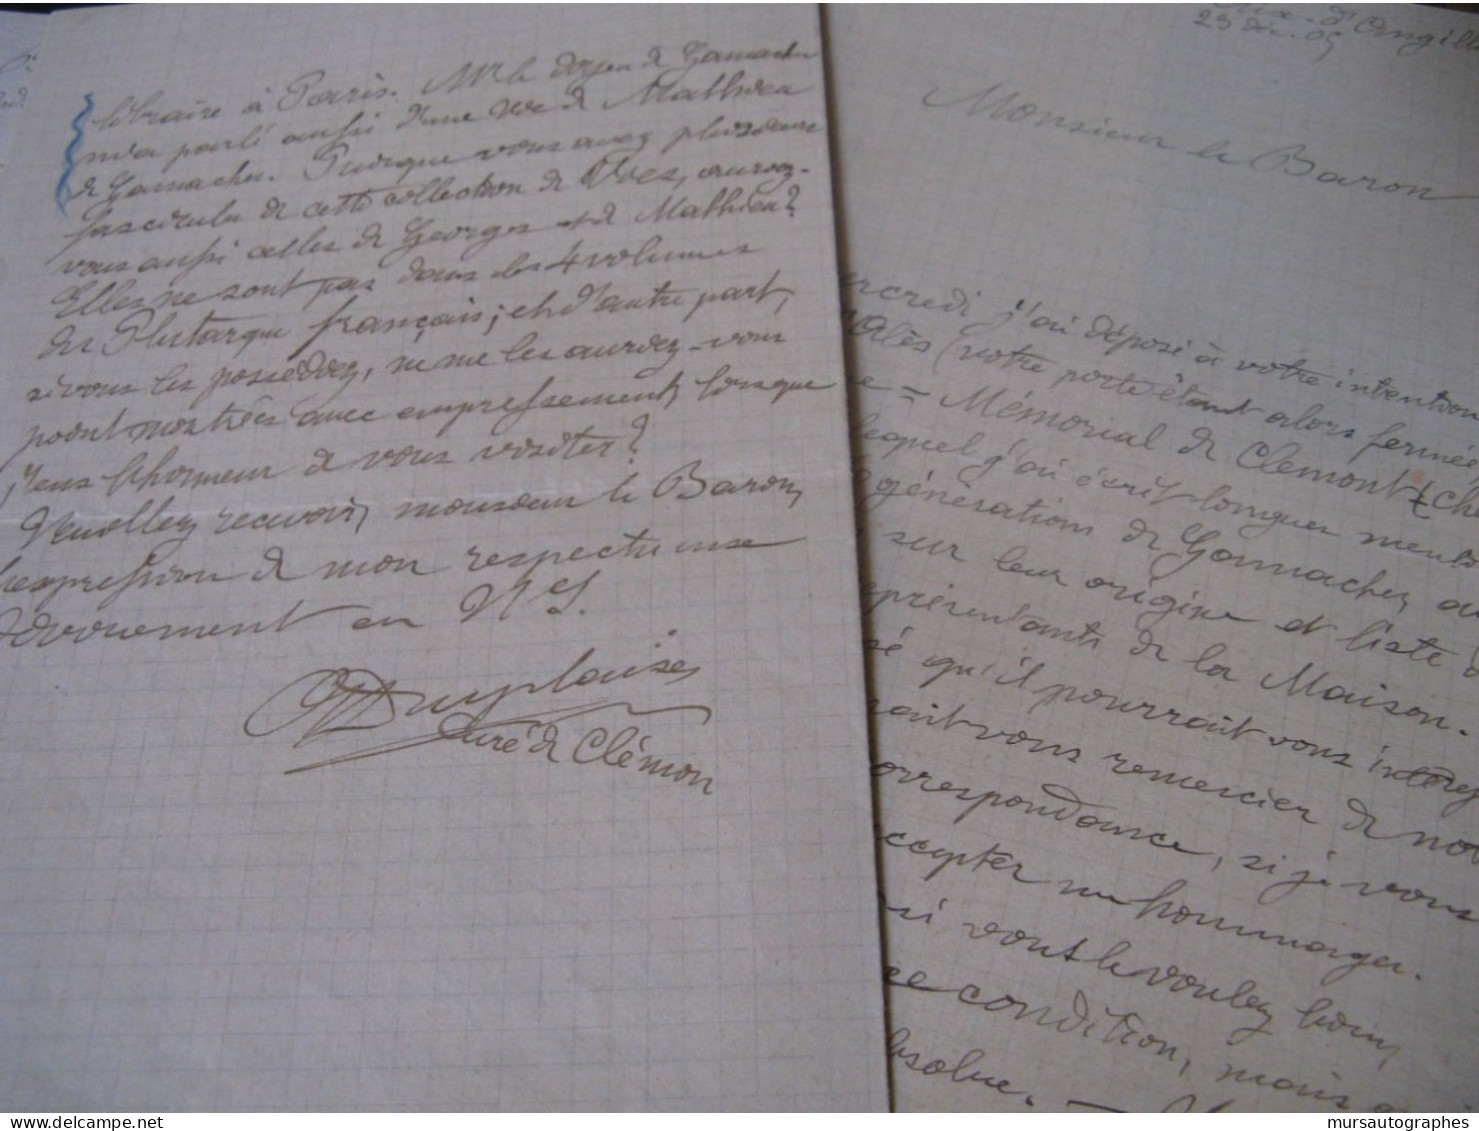 libraire à Paris. Mr le doyen de Gamaches
m'a parlé aussi d'une vie de Mathieu
de Gamaches. Puisque vous avez plusieurs
fascicules de cette collection de Vies, auriez-
vous aussi celles de Georges et de Mathieu?
Elles ne sont pas dans les 4 volumes
du Plutarque français; et d'autre part,
si vous les possédiez, ne me les auriez-vous
point montrées avec empressement, lorsque
j'eus l'honneur de vous visiter?
Veuillez recevoir, monsieur le Baron,
l'expression de mon respectueux
dévouement en N S.
Duplaix
curé de Clémon
d'Angill
23 déc. 05
Monsieur le Baron
j'ai déposé à votre intention
(votre porte étant alors fermée
= Mémorial de Clémont
lequel j'ai écrit longuement
générations de Gamaches
sur leur origine et liste
représentants de la Maison.
qu'il pourrait vous intéres
vous remercier de
correspondance, si je vous
accepter un hommage.
si vous le voulez bien,
condition, mais
absolue.
delcampe.net
mursautographes